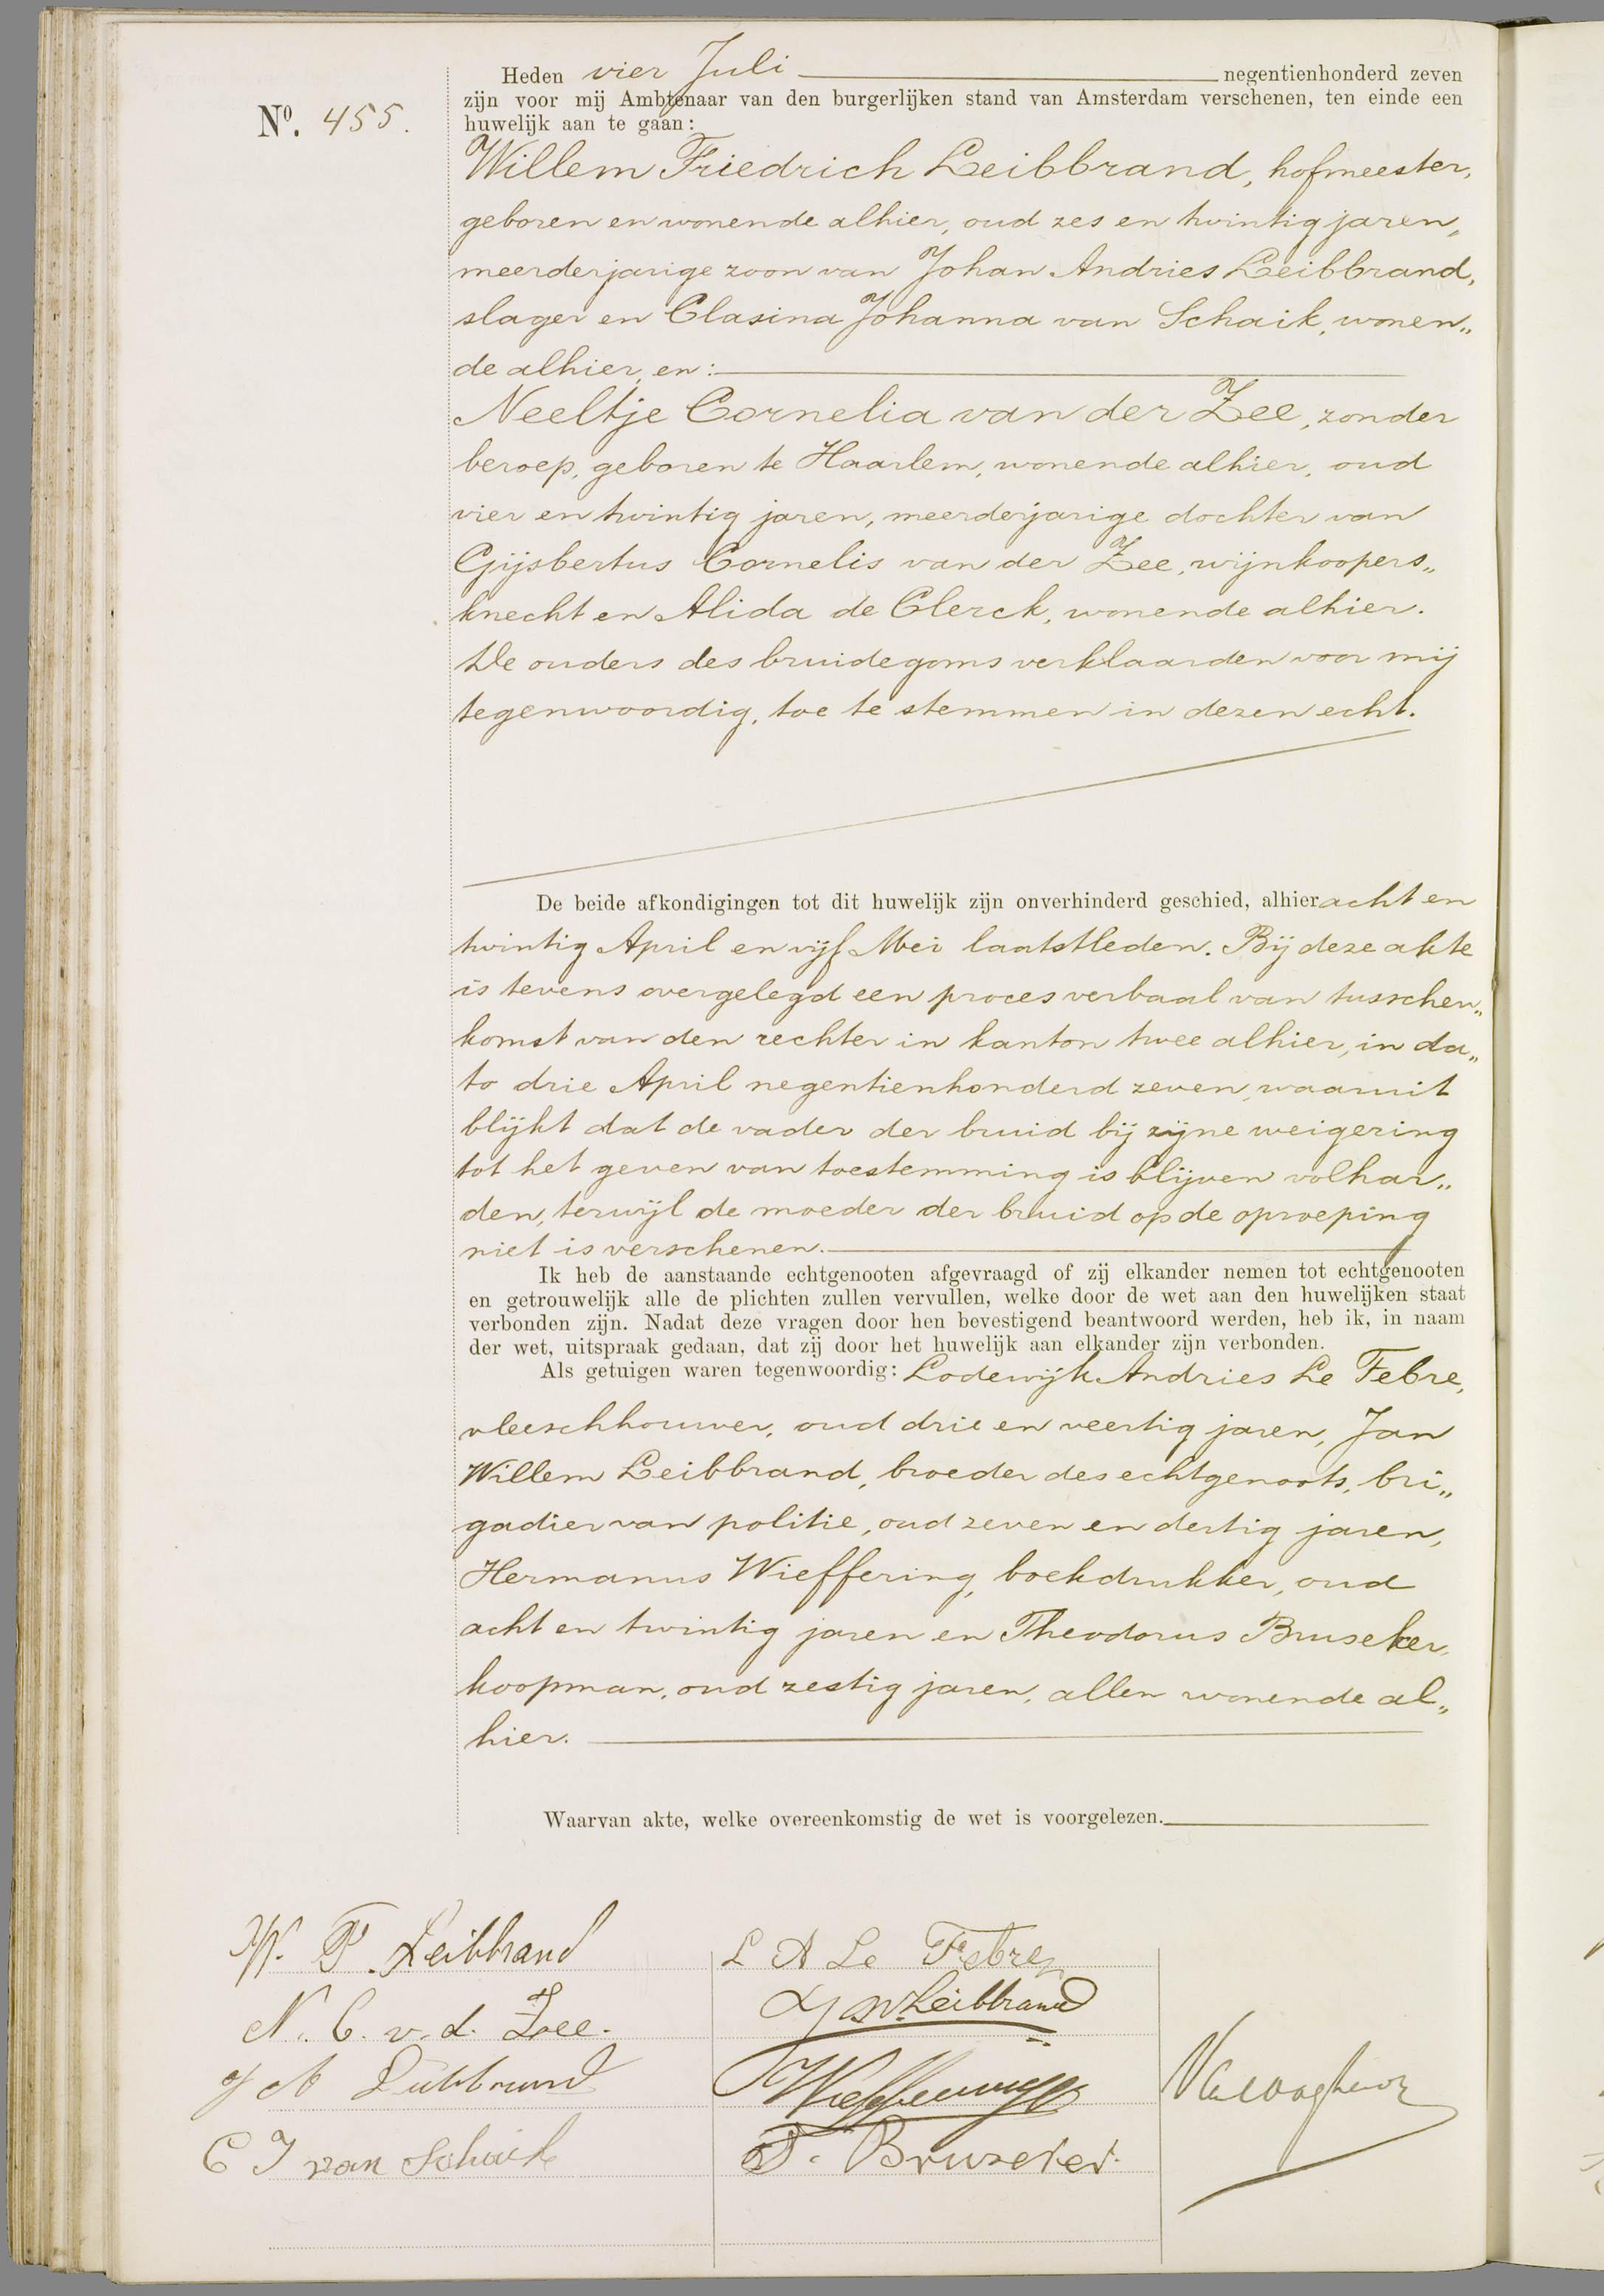 Heden vier Juli negentienhonderd zeven
zijn voor mij Ambtenaar van den burgerlijken stand van Amsterdam verschenen, ten einde een
Nº. 455.
huwelijk aan te gaan:
Willem Friedrich Leibbrand, hofmeester,
geboren en wonende alhier, oud zes en twintig jaren,
meerderjarige zoon van Johan Andries Leibbrand,
slager en Clasina Johanna van Schaik, wonen„
de alhier, en:
Neeltje Cornelia van der Zee, zonder
beroep, geboren te Haarlem, wonende alhier, oud
vier en twintig jaren, meerderjarige dochter van
Gijsbertus Cornelis van der Zee, wijnkoopers„
knecht en Alida de Clerck, wonende alhier.
De ouders des bruidegoms verklaarden voor mij
tegenwoordig, toe te stemmen in dezen echt.
De beide afkondigingen tot dit huwelijk zijn onverhinderd geschied, alhier acht en
twintig April en vijf Mei laatstleden. Bij deze akte
is tevens overgelegd een proces verbaal van tusschen„
komst van den rechter in kanton twee alhier, in da„
to drie April negentienhonderd zeven, waaruit
blijkt dat de vader der bruid bij zijne weigering
tot het geven van toestemming is blijven volhar„
den, terwijl de moeder der bruid op de oproeping
niet is verschenen.
Ik heb de aanstaande echtgenooten afgevraagd of zij elkander nemen tot echtgenooten
en getrouwelijk alle de plichten zullen vervullen, welke door de wet aan den huwelijken staat
verbonden zijn. Nadat deze vragen door hen bevestigend beantwoord werden, heb ik, in naam
der wet, uitspraak gedaan, dat zij door het huwelijk aan elkander zijn verbonden.
Als getuigen waren tegenwoordig: Lodewijk Andries Le Febre,
vleeschhouwer, oud drie en veertig jaren, Jan
Willem Leibbrand, broeder des echtgenoots, bri„
gadier van politie, oud zeven en dertig jaren,
Hermanus Wieffering, boekdrukker, oud
acht en twintig jaren en Theodorus Bruseker,
koopman, oud zestig jaren, allen wonende al„
hier.
Waarvan akte, welke overeenkomstig de wet is voorgelezen.
W. F. Leibbrand
L A Le Febre
N. C. v. d. Zee.
J W. Leibbrand
J A Leibbrand
HWieffering
C J van Schaik
T. Bruseker.